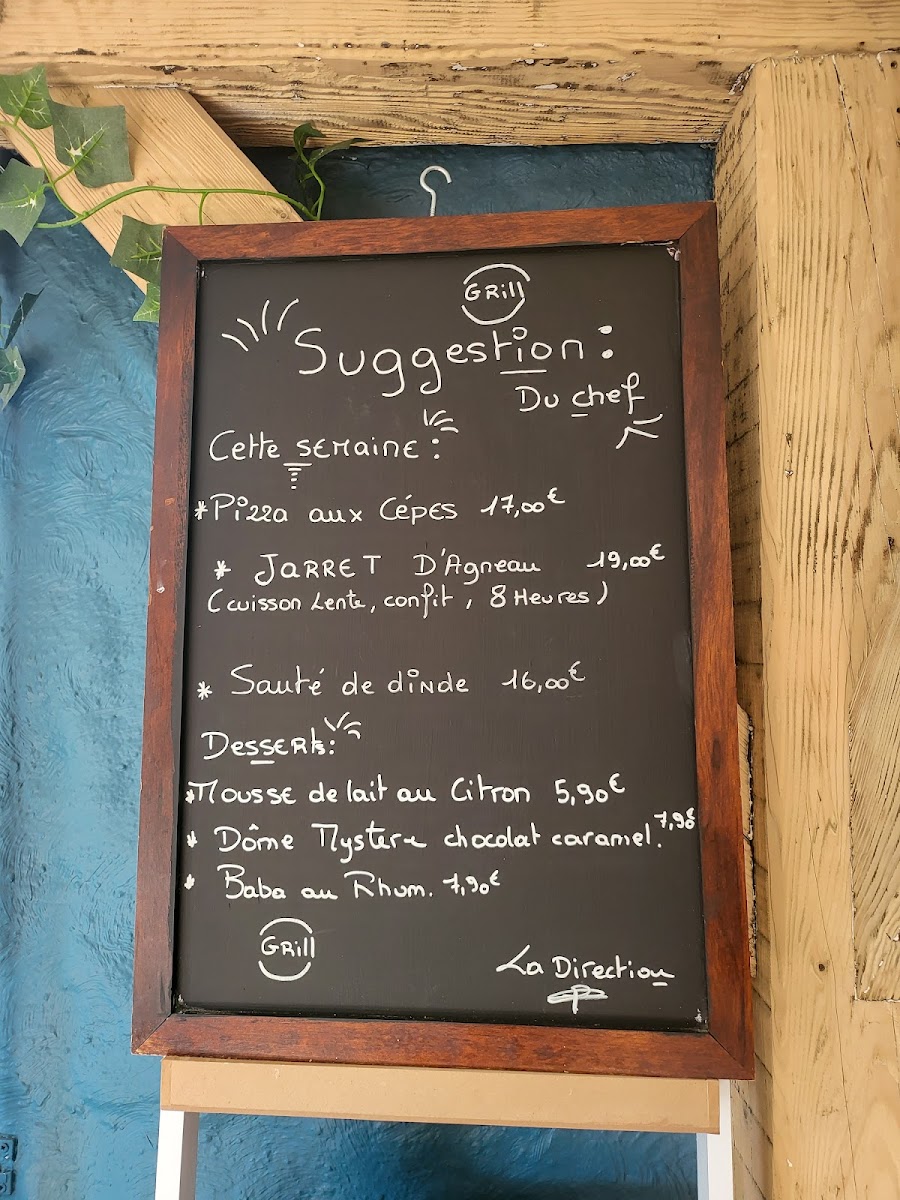 GRill
Suggestion :
Du chef
Cette semaine :
* Pizza aux Cépes 17,00€
* Jarret D'Agneau 19,00€
(cuisson Lente, confit, 8 Heures)
* Sauté de dinde 16,00€
Desserts :
* Mousse de lait au Citron 5,90€
* Dôme Mystere chocolat caramel. 7,90€
* Baba au Rhum. 7,90€
GRill
La Direction